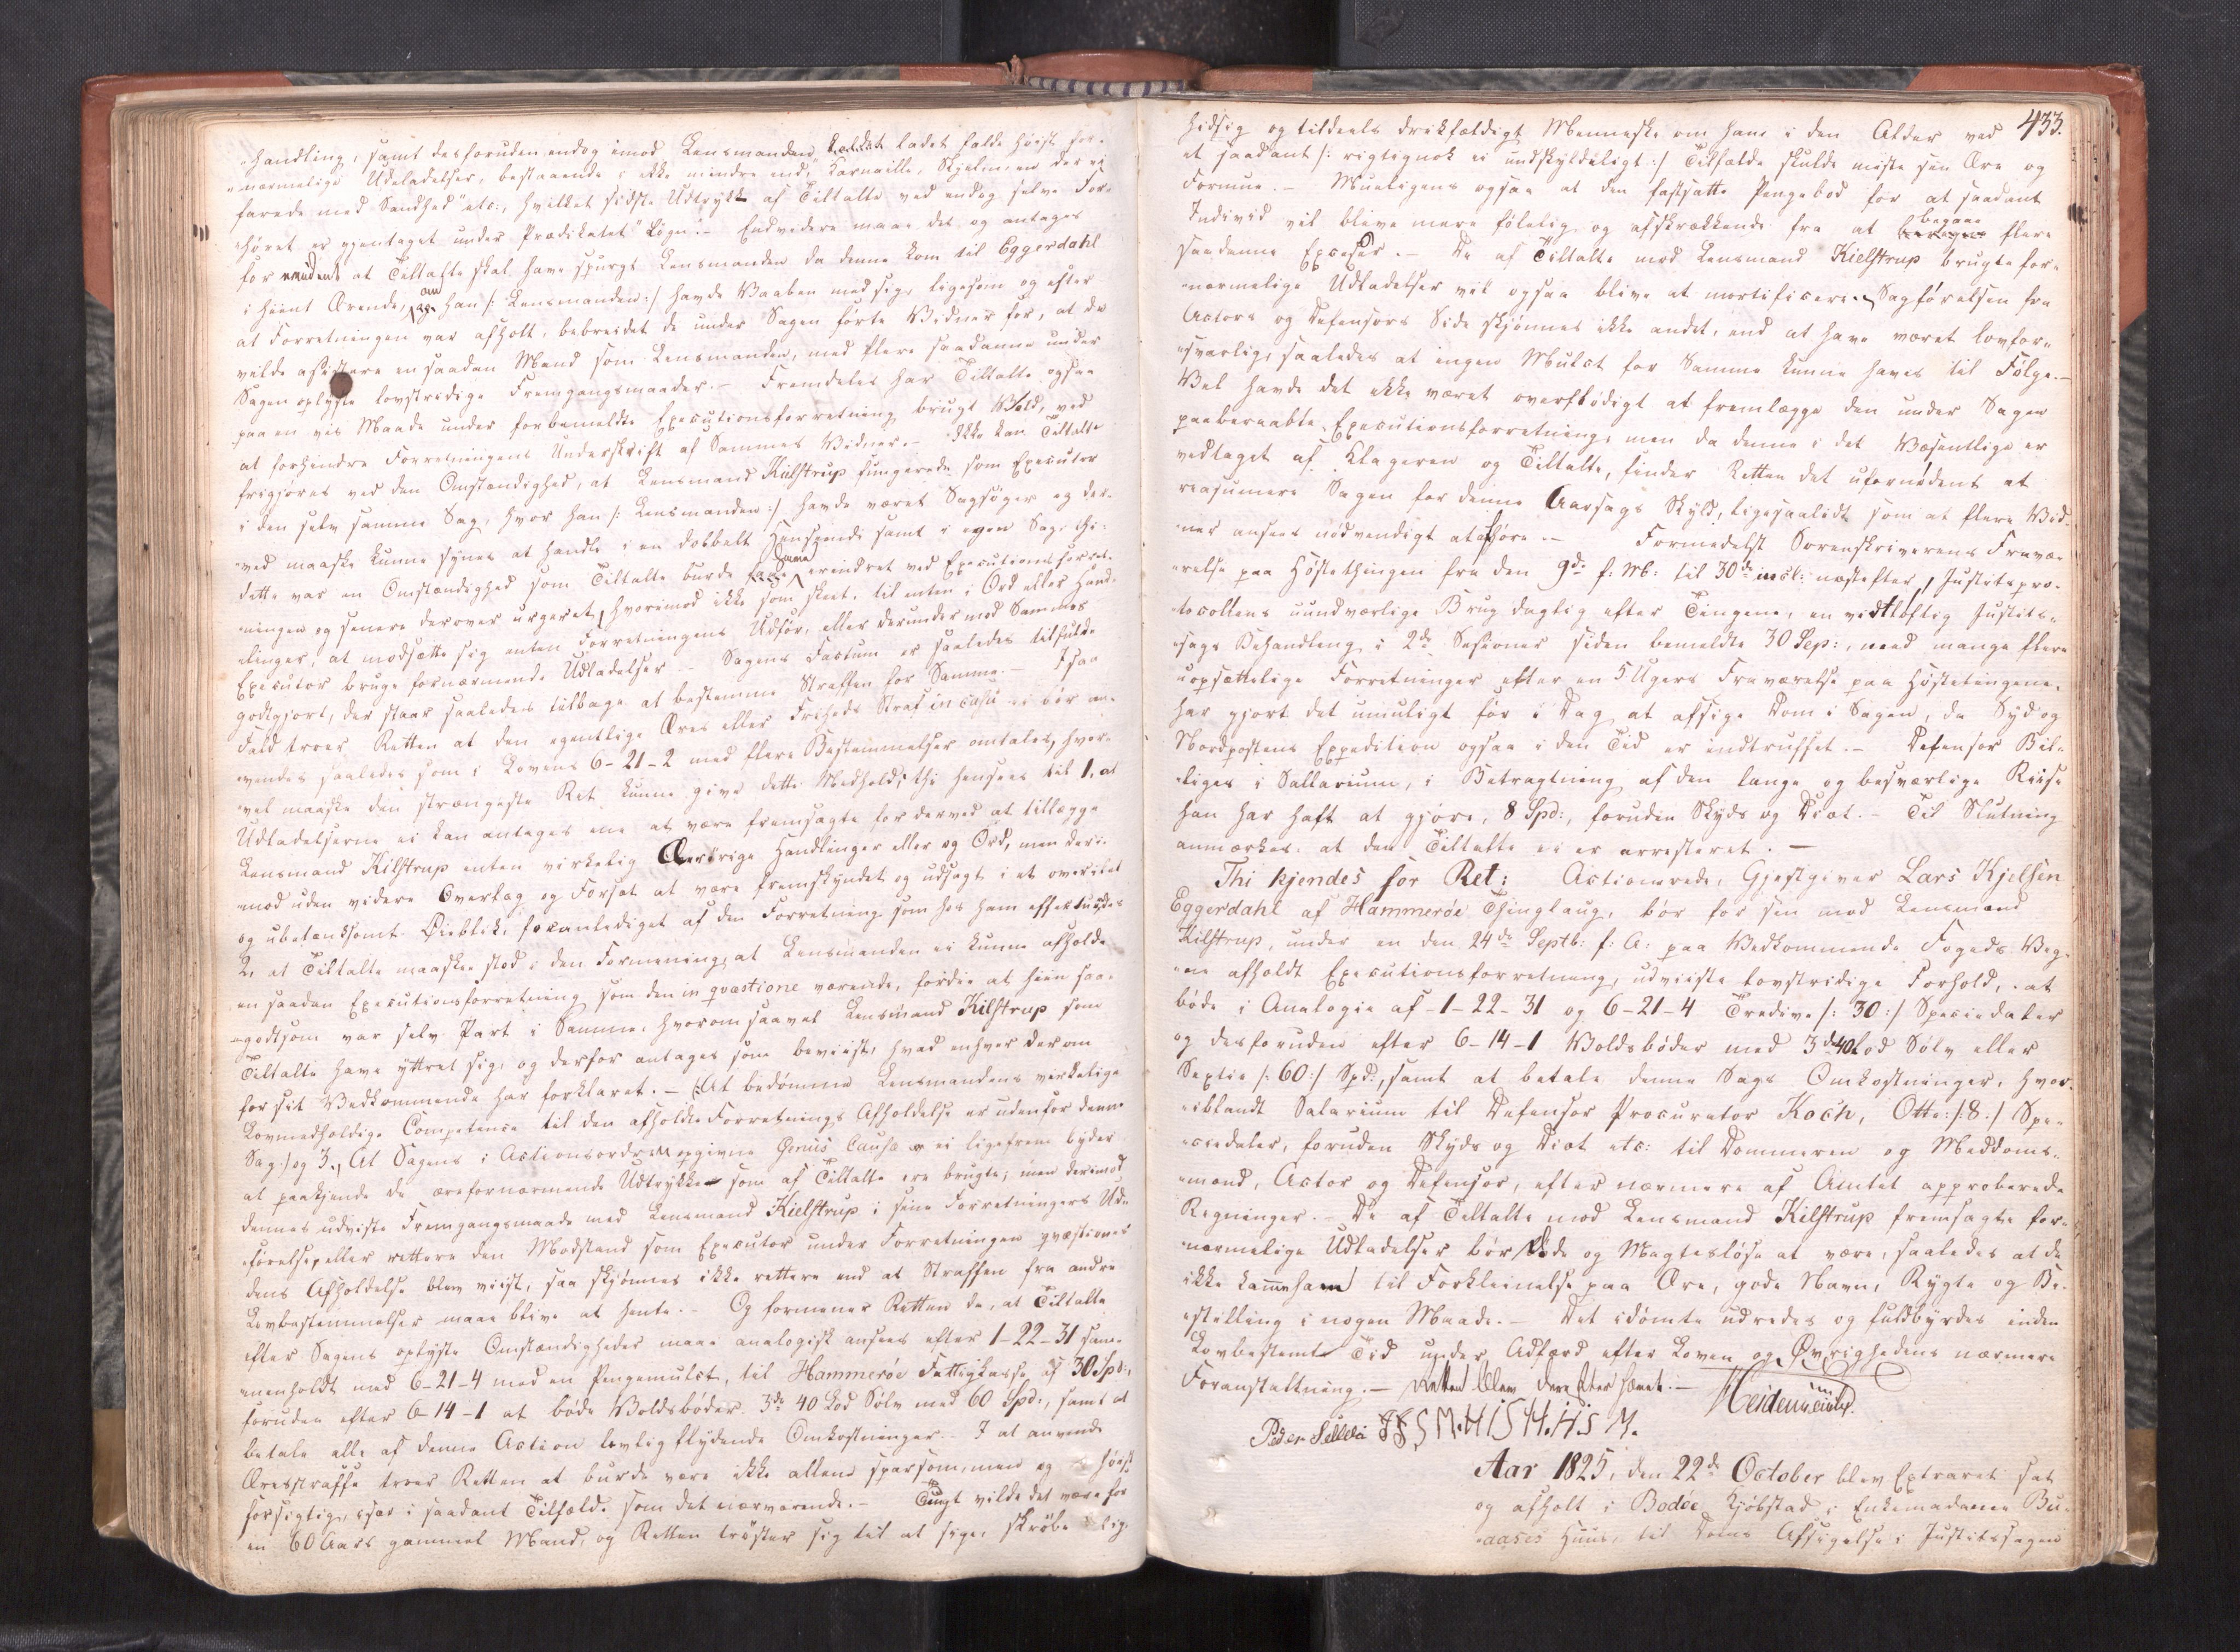 handling, samt desforuden endog imod Lensmanden ladet falde høist for-
nærmelige Udeladelser, bestaaende i ikke mindre end, Karnaille, Skjelm, en der vi
farede med Sandhed" etc:, hvilket sidste Udtryk af Tiltalte ved endog selve For-
høret er gjentaget under Prædikatet "Løgn". - Endvidere maae det og antages
for at Tiltalte skal have spurgt Lensmanden da denne kom til Eggerdahl
i hiint Ærende, om han /: Lensmanden :/ havde Vaaben med sig, ligesom og efter
at Forretningen var afholt, bebreidet de under Sagen førte Vidner for, at de
vilde assistere en saadan Mand som Lensmanden, med flere saadanne under
Sagen oplyste lovstridige Fremgangsmaader. - Fremdeles har Tiltalte ogsaa
paa en vis Maade under forbemeldte Executionsforretning brugt Vold, ved
at forhindre Forretningens Underskrift af Sammes Vidner. - Ikke kan Tiltalte
frigjøres ved den Omstændighed, at Lensmand Kielstrup fungerede som Executor
i den selv samme Sag, hvor han /: Lensmanden :/ havde været Sagsøger og der-
ved maaske kunne synes at handle i en dobbelt Henseende samt i egen Sag, thi
dette var en Omstændighed som Tiltalte burde have erindret ved Executionsforret-
ningen og senere derover urgeret, hvorimod ikke som skeet, til enten i Ord eller Hand-
linger, at modsætte sig enten Forretningens Udfør, eller derunder mod Sammes
Executor bruge fornærmende Udladelser. - Sagens Factum er saaledes tilfulde
godtgjort, der staar saaledes tilbage at bestemme Straffen for Samme. - I saa
Fald troer Retten at den egentlige Æres eller Friheds Straf in casu ei bør an-
vendes saaledes som i Lovens 6-21-2 med flere Bestemmelser omtales, hvor-
vel maaske den strængeste Ret kunne give dette Medhold; thi henseet til 1, at
Udladelserne ei kan antages ene at være fremsagte for derved at tillægge
Lensmand Kilstrup enten virkelig Ærerørige Handlinger eller og Ord, men deri-
mod uden videre Overlæg og Forsæt at være fremskyndet og udsagt i et overilet
og ubetænksomt Øieblik, foranlediget af den Forretning som hos ham effectueredes
2, at Tiltalte maaskee stod i den Formening, at Lensmanden ei kunne afholde
en saadan Executionsforretning som den in qvæstione værende, fordie at hiin saa-
godtsom var selv Part i Samme, hvorom saavel Lensmand Kilstrup som
Tiltalte have yttret sig, og derfor antages som beviist, hvad enhver derom
for sit Vedkommende har forklaret. - /: At bedømme Lensmandens virkelige
Lovmedholdige Competence til den afholdte Forretnings Afholdelse er udenfor denne
Sag :/ og 3., At Sagens i Actionsordren opgivne Genus Causa ei ligefrem byder
at paakjende de ærefornærmende Udtrykke som af Tiltalte ere brugte; men derimod
dennes udviste Fremgangsmaade mod Lensmand Kielstrup i sine Forretningers Ud-
førelse, eller rettere den Modstand som Executor under Forretningen qvæstiones
dens Afholdelse blev viist, saa skjønnes ikke rettere end at Straffen fra andre
Lovbestemmelser maae blive at hente. - Og formener Retten da, at Tiltalte
efter Sagens oplyste Omstændigheder maae analogisk ansees efter 1-22-31 sam-
menholdt med 6-21-4 med en Pengemulct, til Hammerøe Fattigkasse, af 30 Spd:,
foruden efter 6-14-1 at bøde Voldsbøder 3de 40 Lod Sølv med 60 Spd:, samt at
betale alle af denne Action lovlig flydende Omkostninger. - I at anvende
Æresstraffe troer Retten at burde være ikke allene sparsom, men og høist
forsigtig, især i saadant Tilfælde som det nærværende. - Tungt vilde det være for
en 60 Aars gammel Mand, og Retten trøster sig til at sige, skrøbelig
433.
hidsig og tildeels drikfældigt Menneske om han i den Alder ved
et saadant /: rigtignok ei undskyldeligt :/ Tilfælde skulde miste sin Ære og
Formue. - Mueligens ogsaa at den fastsatte Pengebod for at saadant
Individ vil blive mere følelig og afskrækkende fra at begaae flere
saadanne Excesser. - De af Tiltalte mod Lensmand Kielstrup brugte for-
nærmelige Udladelser vil ogsaa blive at mortificere. Sagførelsen fra
Actors og Defensors Side skjønnes ikke andet, end at have været lovfor-
svarlig, saaledes at ingen Mulct for Samme kunne haves til Følge. -
Vel havde det ikke været overflødigt at fremlægge den under Sagen
paaberaabte Executionsforretning, men da denne i det Væsentlige er
vedtaget af Klageren og Tiltalte, finder Retten det ufornødent at
reasumere Sagen for denne Aarsags Skyld, ligesaalidt som at flere Vid-
ner ansees nødvendigt at afhøre. - Formedelst Sorenskriverens Fravæ-
relse paa Høstethingen fra den 9de f: M: til 30de incl: næstefter, Justitspro-
tocollens uundværlige Brug daglig efter Tingene, en vidtløftig Justits-
sags Behandling i 2de Sessioner siden bemeldte 30 Sep:, med mange flere
uopsættelige Forretninger efter en 5 Ugers Fraværelse paa Høstetingene,
har gjort det umuligt før i Dag at afsige Dom i Sagen, da Syd og
Nordpostens Expedition ogsaa i den Tid er indtruffet. - Defensor Bil-
liges i Sallarium, i Betragtning af den lange og besværlige Reise
han har haft at gjøre, 8 Spd:, foruden Skyds og Diæt. - Til Slutning
anmærkes: at den Tiltalte ei er arresteret. -
Thi kjendes for Ret: Actionerede, Gjestgiver Lars Kjelsen
Eggerdahl af Hammerøe Thinglaug, bør for sin mod Lensmand
Kilstrup, under en den 24de Septb: f: A: paa Vedkommende Fogeds Veg-
ne afholdt Executionsforretning, udviiste lovstridige Forhold, at
bøde i Analogie af 1-22-31 og 6-21-4 Tredive /: 30 :/ Speciedaler
og desforuden efter 6-14-1 Voldsbøder med 3de 40 Lod Sølv eller
Sextie /: 60 :/ Spd:, samt at betale denne Sags Omkostninger, hvor-
iblandt Salarium til Defensor Procurator Koch, Otte /: 8 :/ Spe-
ciedaler, foruden Skyds og Diæt etc: til Dommeren og Meddoms-
mænd, Actor og Defensor, efter nærmere af Amtet approberede
Regninger. - De af Tiltalte mod Lensmand Kilstrup fremsagte for-
nærmelige Udladelser bør døde og Magtesløse at være, saaledes at de
ikke komme ham til Forkleinelse paa Ære, gode Navn, Rygte og Be-
stilling i nogen Maade. - Det idømte udredes og fuldbyrdes inden
Lovbestemt Tid under Adfærd efter Loven og Øvrighedens nærmere
Foranstaltning. - Retten blev derefter hævet. -
Peder
Aar 1825, den 22de October blev Extraret sat
og afholt i Bodøe Kjøbstad i Enkemadame Bu-
aases Huus, til Doms Afsigelse i Justitssagen